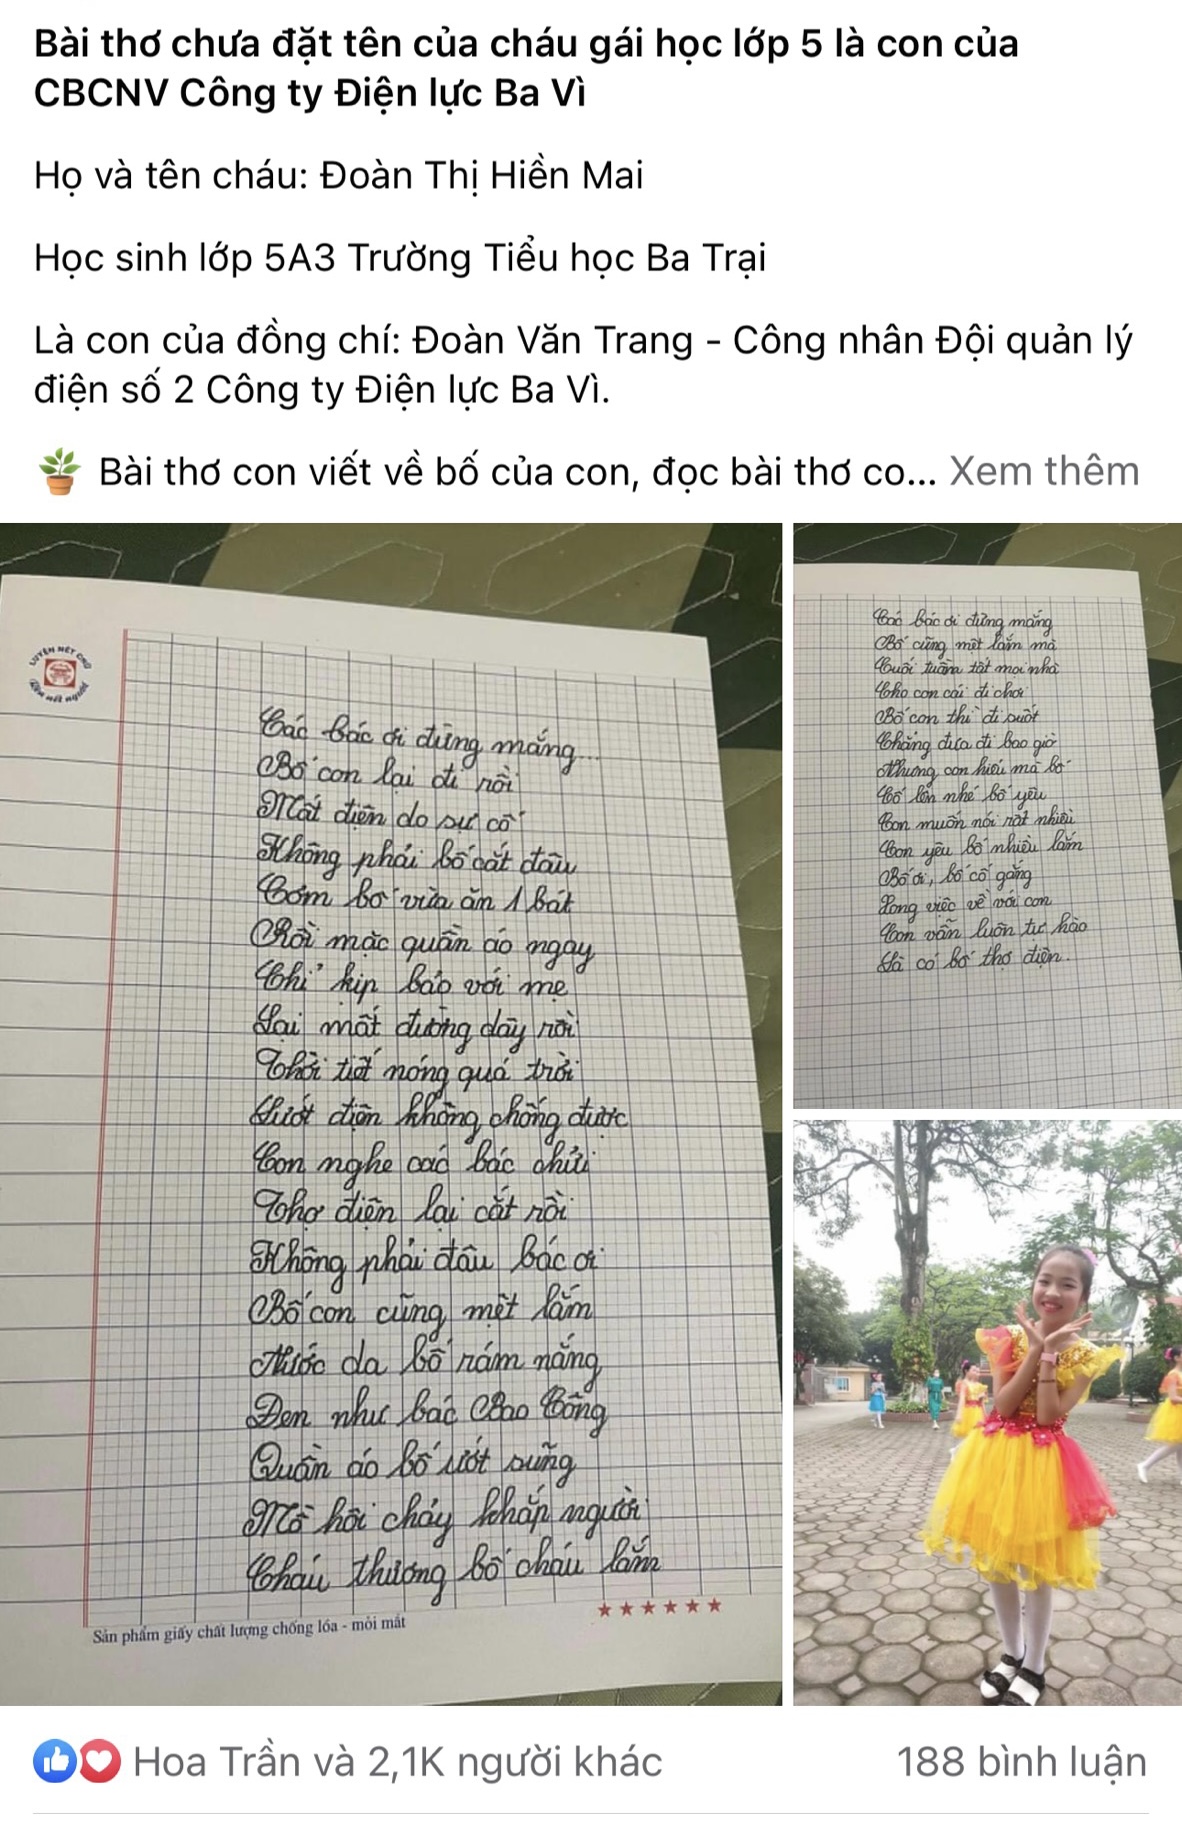 Bài thơ chưa đặt tên của cháu gái học lớp 5 là con của
CBCNV Công ty Điện lực Ba Vì
Họ và tên cháu: Đoàn Thị Hiền Mai
Học sinh lớp 5A3 Trường Tiểu học Ba Trại
Là con của đồng chí: Đoàn Văn Trang - Công nhân Đội quản lý
điện số 2 Công ty Điện lực Ba Vì.
🪴 Bài thơ con viết về bố của con, đọc bài thơ co... Xem thêm
LUYỆN NÉT CHỮ
Rèn nết người
Các bác ơi đừng mắng...
Bố con lại đi rồi
Mất điện do sự cố
Không phải bố cắt đâu
Cơm bố vừa ăn 1 bát
Rồi mặc quần áo ngay
Chỉ kịp báo với mẹ
Lại mất đường dây rồi
Thời tiết nóng quá trời
Lưới điện không chống được
Con nghe các bác chửi
Thợ điện lại cắt rồi
Không phải đâu bác ơi
Bố con cũng mệt lắm
Nước da bố rám nắng
Đen như bác Bao Công
Quần áo bố ướt sũng
Mồ hôi chảy khắp người
Cháu thương bố cháu lắm
Sản phẩm giấy chất lượng chống lóa - mỏi mắt
★★★★★★
Các bác ơi đừng mắng
Bố cũng mệt lắm mà
Cuối tuần tất mọi nhà
Cho con cái đi chơi
Bố con thì đi suốt
Chẳng đưa đi bao giờ
Nhưng con hiểu mà bố
Cố lên nhé bố yêu
Con muốn nói rất nhiều
Con yêu bố nhiều lắm
Bố ơi, bố cố gắng
Xong việc về với con
Con vẫn luôn tự hào
Là có bố thợ điện.
Hoa Trần và 2,1K người khác
188 bình luận